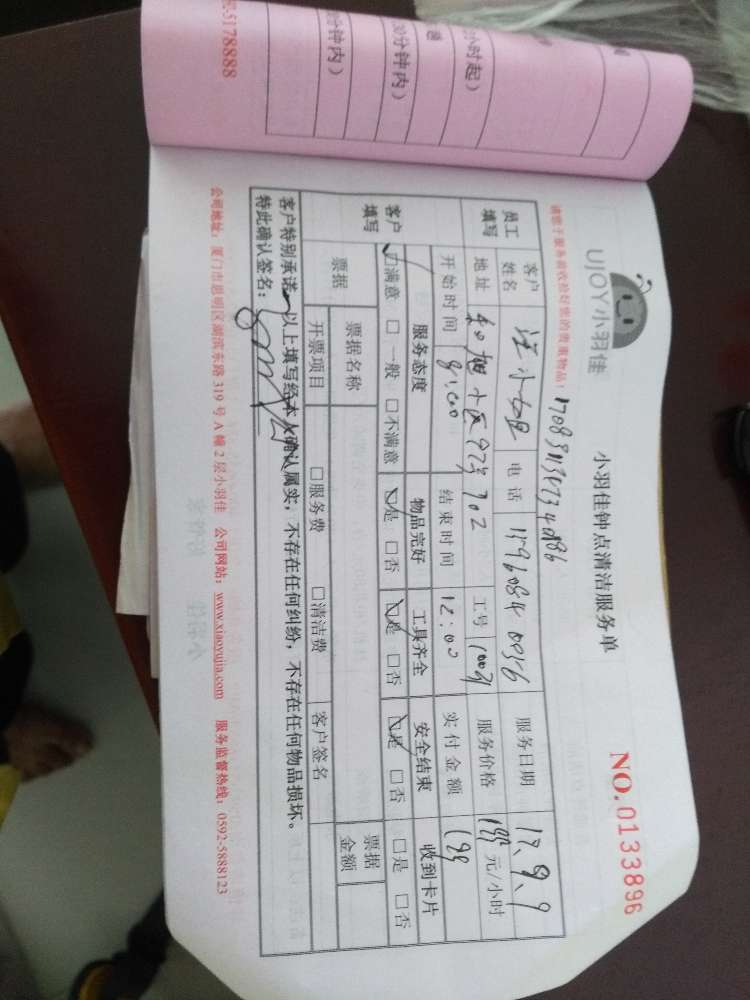 5178888
小时起)
30分钟内)
分钟内)
UJOY小羽佳
小羽佳钟点清洁服务单
NO.0133896
请您于服务前收拾好您的贵重物品!
员工填写 客户姓名 电话 服务日期 17.9.9
地址 702 工号 服务价格 元/小时
开始时间 8:00 结束时间 12:00 实付金额
客户填写 服务态度 物品完好 工具齐全 安全结束 收到卡片
□满意 □一般 □不满意 □是 □否 □是 □否 □是 □否 □是 □否
票据 票据名称 票据金额
开票项目 □服务费 □清洁费 客户签名
客户特别承诺:以上填写经本人确认属实,不存在任何纠纷,不存在任何物品损坏。
特此确认签名:
公司地址:厦门市思明区湖滨东路319号A幢2层小羽佳 公司网站:www.xiaoyujia.com 服务监督热线:0592-5888123